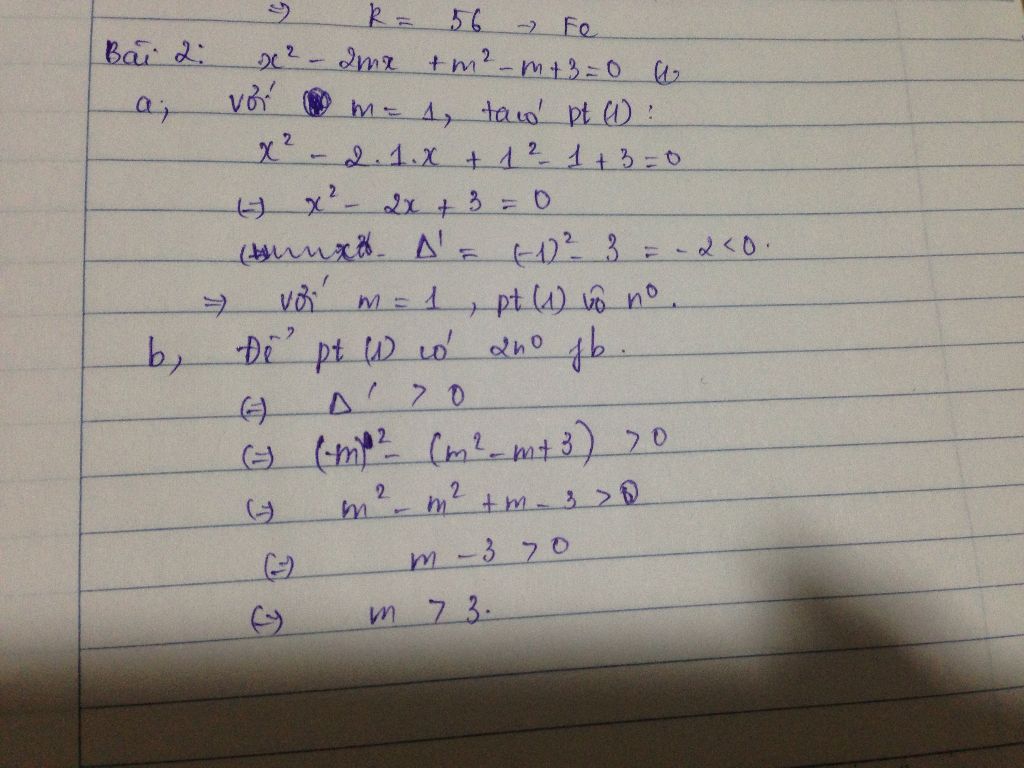 => R = 56 → Fe
Bài 2: x² - 2mx + m² - m + 3 = 0 (1)
a, với m = 1, ta có pt (1) :
x² - 2.1.x + 1² - 1 + 3 = 0
(=) x² - 2x + 3 = 0
Δ' = (-1)² - 3 = -2 < 0.
=> với m = 1, pt (1) vô nº.
b, Để pt (1) có 2nº fb.
(=) Δ' > 0
(=) (-m)² - (m² - m + 3) > 0
(=) m² - m² + m - 3 > 0
(=) m - 3 > 0
(=) m > 3.